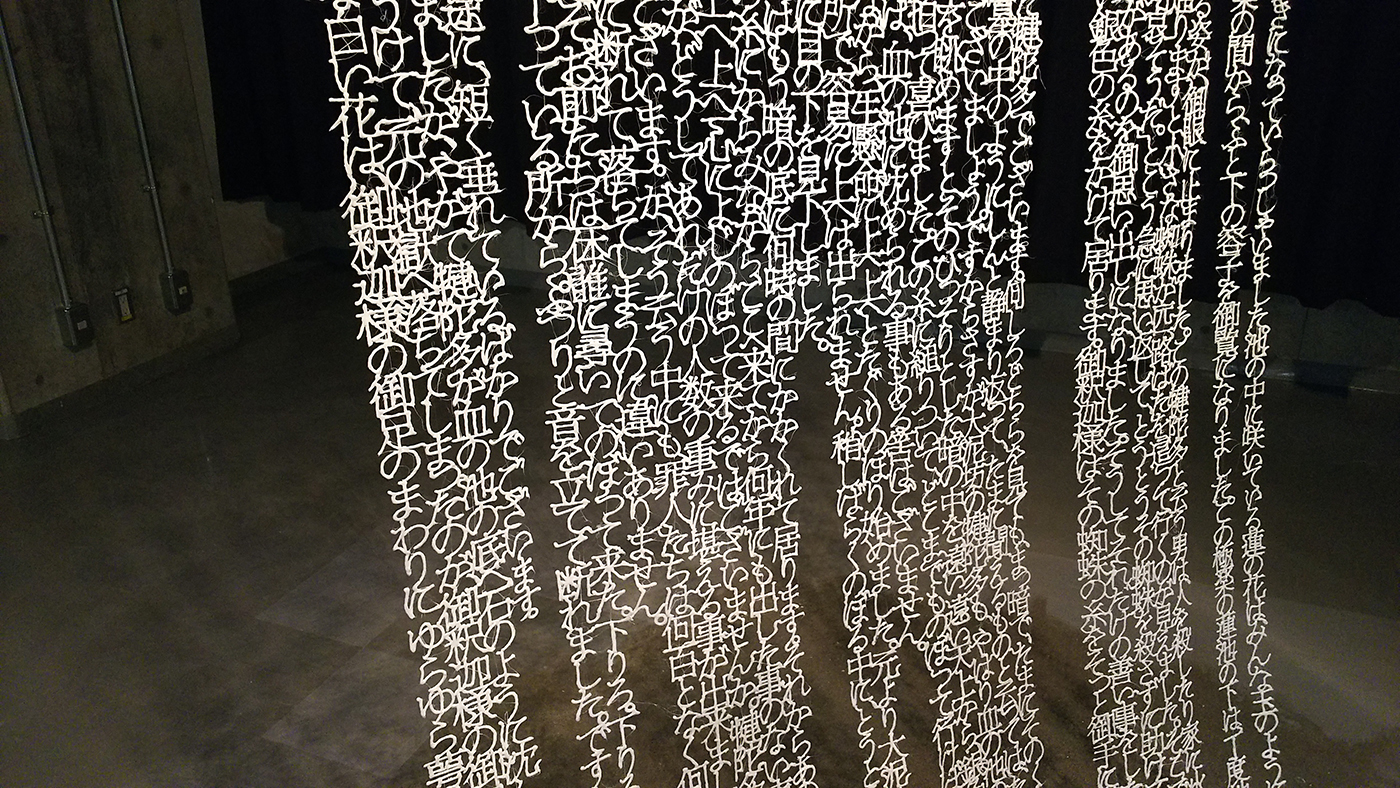 きになっていらっしゃいました。池の中に咲いている蓮の花はみんな玉のよう
葉の間からふと下の容子を御覧になりました。この極楽の蓮池の下は丁度
姿が御眼に止まりました。この犍陀多と云う男は人を殺したり家に
通りますと小さな蜘蛛が一匹路ばたを這って行くのが見えました。
可哀そうだ。とこう急に思い返してとうとうその蜘蛛を殺さずに助け
があるのを御思い出しになりました。そうしてそれだけの善い事をした
銀色の糸をかけて居ります。御釈迦様はその蜘蛛の糸をそっと御手に
犍陀多でございます。何しろどちらを見てもまっ暗でたまにそのく
墓の中のようにしんと静まり返ってたまに聞
でございましょう。ですからさすが大泥坊の犍陀多もやはり血の池
を眺めますとそのひっそりとした暗の中を遠い遠い天上から
拍って喜びました。この糸に縋りついてどこまでものぼって行け
は血の池に沈められる事もある筈はございません。
ながら一生懸命に上へ上へとたぐりのぼり始めました。元より大泥
所で容易に上へは出られません。稍しばらくのぼる中にとう
に目の下を見下しました。
はもう暗の底に何時の間にかかくれて居ります。それからあ
糸にからみながらここへ来てから何年にも出した事のない
上へ上へ一心によじのぼって来るではございませんか。犍陀多
がどうしてあれだけの人数の重みに堪える事が出来ま
ございます。がそう云う中にも罪人たちは何百となく何
に断れて落ちてしまうのに違いありません。
て。お前たちは一体誰に尋いてのぼって来た。下りろ。下りろ
下っている所からぷつりと音を立てて断れました。です
途に短く垂れているばかりでございます。
ましたがやがて犍陀多が血の池の底へ石のように沈
うけて元の地獄へ落ちてしまったのが御釈迦様の御
白い花は御釈迦様の御足のまわりにゆらゆら萼